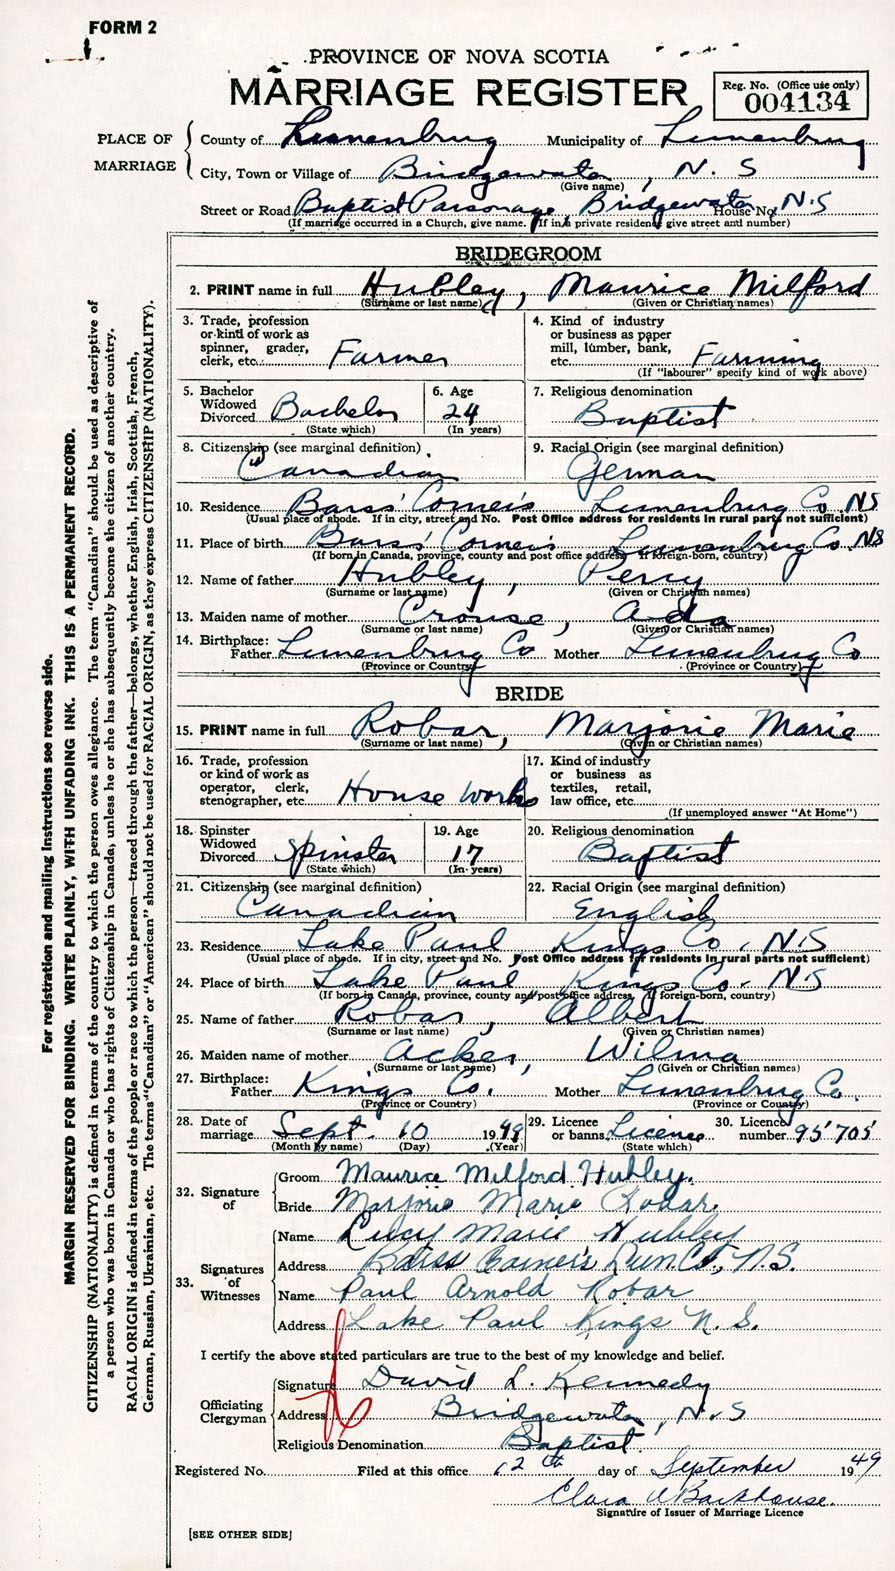 FORM 2
PROVINCE OF NOVA SCOTIA
MARRIAGE REGISTER
Reg. No. (Office use only)
004134
PLACE OF MARRIAGE
County of Lunenburg Municipality of Lunenburg
City, Town or Village of Bridgewater, N. S
(Give name)
Street or Road Baptist Parsonage, Bridgewater House No. N.S
(If marriage occurred in a Church, give name. If in a private residence give street and number)
BRIDEGROOM
2. PRINT name in full Hubley, Maurice Milford
(Surname or last name) (Given or Christian names)
3. Trade, profession or kind of work as spinner, grader, clerk, etc. Farmer
4. Kind of industry or business as paper mill, lumber, bank, etc. Farming
(If "labourer" specify kind of work above)
5. Bachelor Widowed Divorced Bachelor
(State which)
6. Age 24
(In years)
7. Religious denomination
Baptist
8. Citizenship (see marginal definition)
Canadian
9. Racial Origin (see marginal definition)
German
10. Residence Barss' Corner's Lunenburg Co NS
(Usual place of abode. If in city, street and No. Post Office address for residents in rural parts not sufficient)
11. Place of birth Barss' Corner's Lunenburg Co. NS
(If born in Canada, province, county and post office address. If foreign-born, country)
12. Name of father Hubley, Percy
(Surname or last name) (Given or Christian names)
13. Maiden name of mother Crouse, Ada
(Surname or last name) (Given or Christian names)
14. Birthplace:
Father Lunenburg Co Mother Lunenburg Co
(Province or Country) (Province or Country)
BRIDE
15. PRINT name in full Robar, Marjorie Marie
(Surname or last name) (Given or Christian names)
16. Trade, profession or kind of work as operator, clerk, stenographer, etc. House Works
17. Kind of industry or business as textiles, retail, law office, etc.
(If unemployed answer "At Home")
18. Spinster Widowed Divorced Spinster
(State which)
19. Age 17
(In years)
20. Religious denomination
Baptist
21. Citizenship (see marginal definition)
Canadian
22. Racial Origin (see marginal definition)
English
23. Residence Lake Paul Kings Co. N.S
(Usual place of abode. If in city, street and No. Post Office address for residents in rural parts not sufficient)
24. Place of birth Lake Paul Kings Co. N.S
(If born in Canada, province, county and post office address, If foreign-born, country)
25. Name of father Robar, Albert
(Surname or last name) (Given or Christian names)
26. Maiden name of mother Acker, Wilma
(Surname or last name) (Given or Christian names)
27. Birthplace:
Father Kings Co. Mother Lunenburg Co.
(Province or Country) (Province or Country)
28. Date of marriage Sept. 10 1949
(Month by name) (Day) (Year)
29. Licence or banns Licence
(State which)
30. Licence number 95705
32. Signature of
Groom Maurice Milford Hubley.
Bride Marjorie Marie Robar.
33. Signatures of Witnesses
Name Lucy Marie Hubley
Address Barss Corner's Lun Co, N.S.
Name Paul Arnold Robar
Address Lake Paul Kings N. S.
I certify the above stated particulars are true to the best of my knowledge and belief.
Officiating Clergyman
Signature David L. Kennedy
Address Bridgewater, N.S
Religious Denomination Baptist.
Registered No. Filed at this office 12th day of September 1949
Clara Backhouse.
Signature of Issuer of Marriage Licence
[SEE OTHER SIDE]
For registration and mailing instructions see reverse side.
MARGIN RESERVED FOR BINDING. WRITE PLAINLY, WITH UNFADING INK. THIS IS A PERMANENT RECORD.
CITIZENSHIP (NATIONALITY) is defined in terms of the country to which the person owes allegiance. The term "Canadian" should be used as descriptive of
a person who was born in Canada or who has rights of Citizenship in Canada, unless he or she has subsequently become the citizen of another country.
RACIAL ORIGIN is defined in terms of the people or race to which the person—traced through the father—belongs, whether English, Irish, Scottish, French,
German, Russian, Ukrainian, etc. The terms "Canadian" or "American" should not be used for RACIAL ORIGIN, as they express CITIZENSHIP (NATIONALITY).